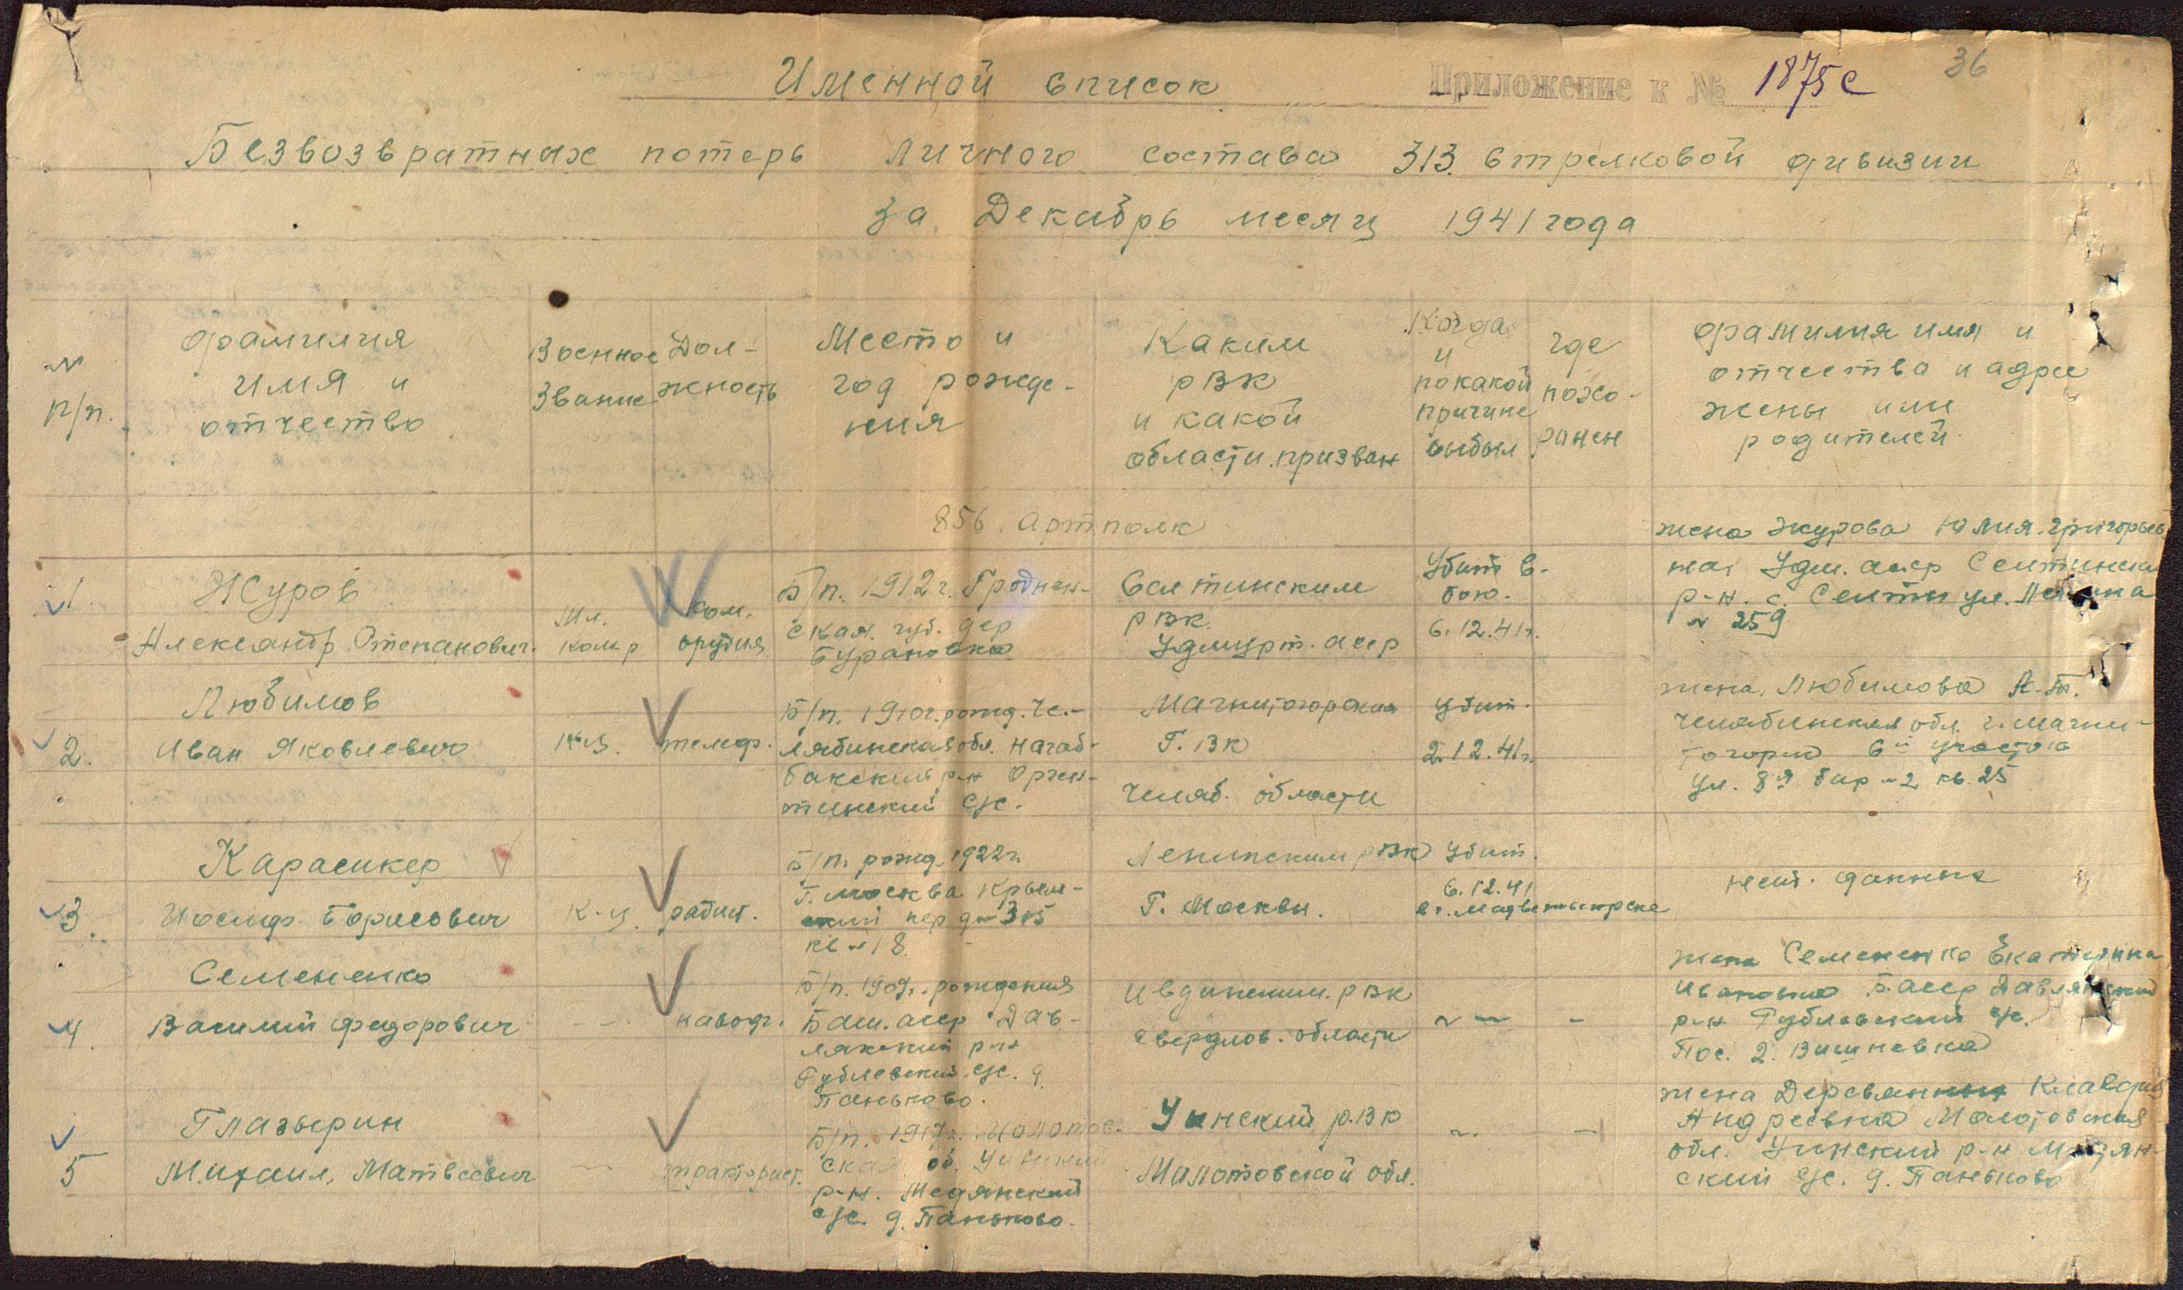 Именной список
Приложение к № 1875с
36
Безвозвратных потерь личного состава 313 стрелковой дивизии
за Декабрь месяц 1941 года
№
п/п.
фамилия
имя и
отчество
Военное
звание
Дол-
жность
Место и
год рожде-
ния
Каким
РВК
и какой
области призван
Когда
и
по какой
причине
выбыл
где
похо-
ранен
фамилия имя и
отчество и адрес
жены или
родителей
856 Артполк
1.
Журов
Александр Степанович.
Мл.
ком-р
ком.
орудия
Б/п. 1912 г. Гроднен-
ская губ. дер
Бурановка
Селтинским
РВК
Удмурт. АССР
Убит в
бою.
6.12.41 г.
жена Журова Юлия Григорьев
на Удм. АССР Селтинск
р-н. с. Селты ул. Ленина
№ 259
2.
Любимов
Иван Яковлевич
К-ц.
телеф.
Б/п. 1910 г. рожд. Че-
лябинская обл. Нагай-
бакский р-н Арген-
тинский с/с.
Магнитогорским
Г.ВК
Челяб. области
Убит.
2.12.41 г.
жена Любимова А.
Челябинская обл. г. Магни-
тогорск 6й участок
ул. 8я бар №2 кв. 25
3.
Карасикер
Иосиф Борисович
К-ц.
радист.
Б/п. рожд. 1922 г.
Г. Москва
пер д №
кв №18
Ленинским РВК
Г. Москвы.
Убит.
6.12.41
нет. данных
4.
Семененко
Василий Федорович
-- --
наводч.
Б/п. 1909 г. рождения
Баш. АССР Дав-
лекский р-н
Рублевский с/с. д.
Паньково.
Ивдинским РВК
Свердлов. области
~ —
-
жена Семененко Екатерина
Ивановна Б. АССР
р-н Рублевский с/с.
Пос. 2. Вишневка
5
Глазырин
Михаил Матвеевич
-- --
тракторист.
Б/п. 1917 г. Молотов-
ская об. Уинский
р-н. Медянский
с/с. д. Паньково.
Уинский РВК
Молотовской обл.
~
—
жена Клавдия
Андреевна Молотовская
обл. Уинский р-н Медян-
ский с/с. д. Паньково